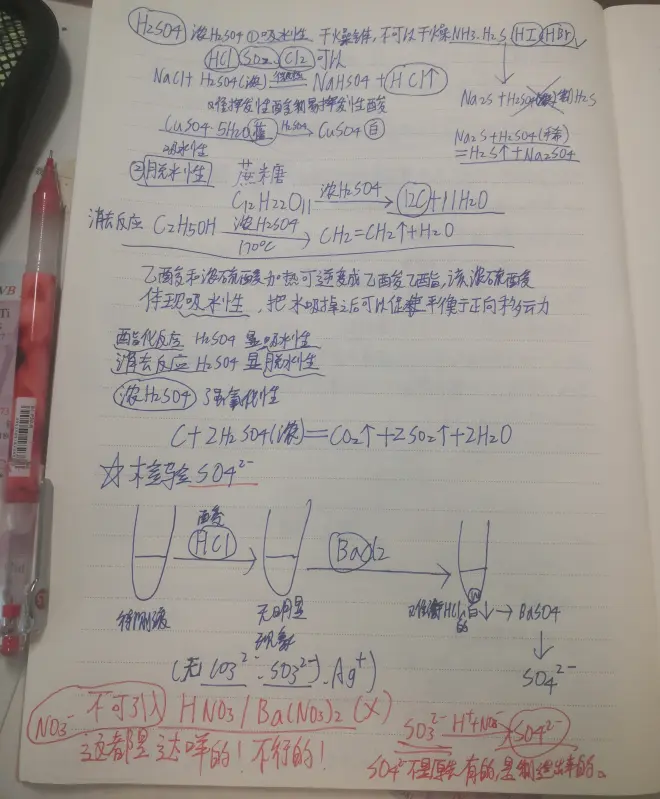 H2SO4 浓H2SO4 ①吸水性 干燥气体,不可以干燥NH3.H2S HI HBr
HCl SO2 Cl2 可以
NaCl + H2SO4(浓) = NaHSO4 + HCl↑
Na2S + H2SO4 H2S
难挥发性酸制易挥发性酸
CuSO4·5H2O 蓝 H2SO4→ CuSO4 白
吸水性
Na2S + H2SO4(稀)
= H2S↑ + Na2SO4
②脱水性 蔗糖
C12H22O11 浓H2SO4→ 12C + 11H2O
消去反应 C2H5OH 浓H2SO4 170℃→ CH2=CH2↑ + H2O
乙酸和浓硫酸加热可逆变成乙酸乙酯,该浓硫酸
体现吸水性,把水吸掉之后可以使平衡于正向移动
酯化反应 H2SO4 显吸水性
消去反应 H2SO4 显脱水性
浓H2SO4 强氧化性
C + 2H2SO4(浓) = CO2↑ + 2SO2↑ + 2H2O
☆检验SO4²⁻
酸
HCl BaCl2
待测液 无明显
现象
HCl 白↓ → BaSO4
↓
SO4²⁻
(无CO3²⁻ SO3²⁻).Ag⁺)
NO3⁻ 不可引入 HNO3 / Ba(NO3)2 (X)
这都是达咩的!不行的!
SO3²⁻ H⁺+NO3⁻→ SO4²⁻
SO4²⁻不是原来有的,是制造出来的。